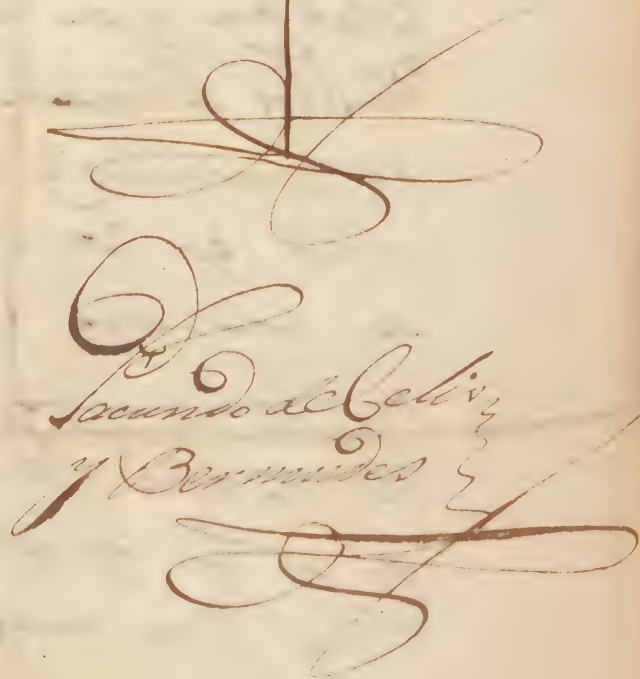 Facundo de Celis
y Bermudes